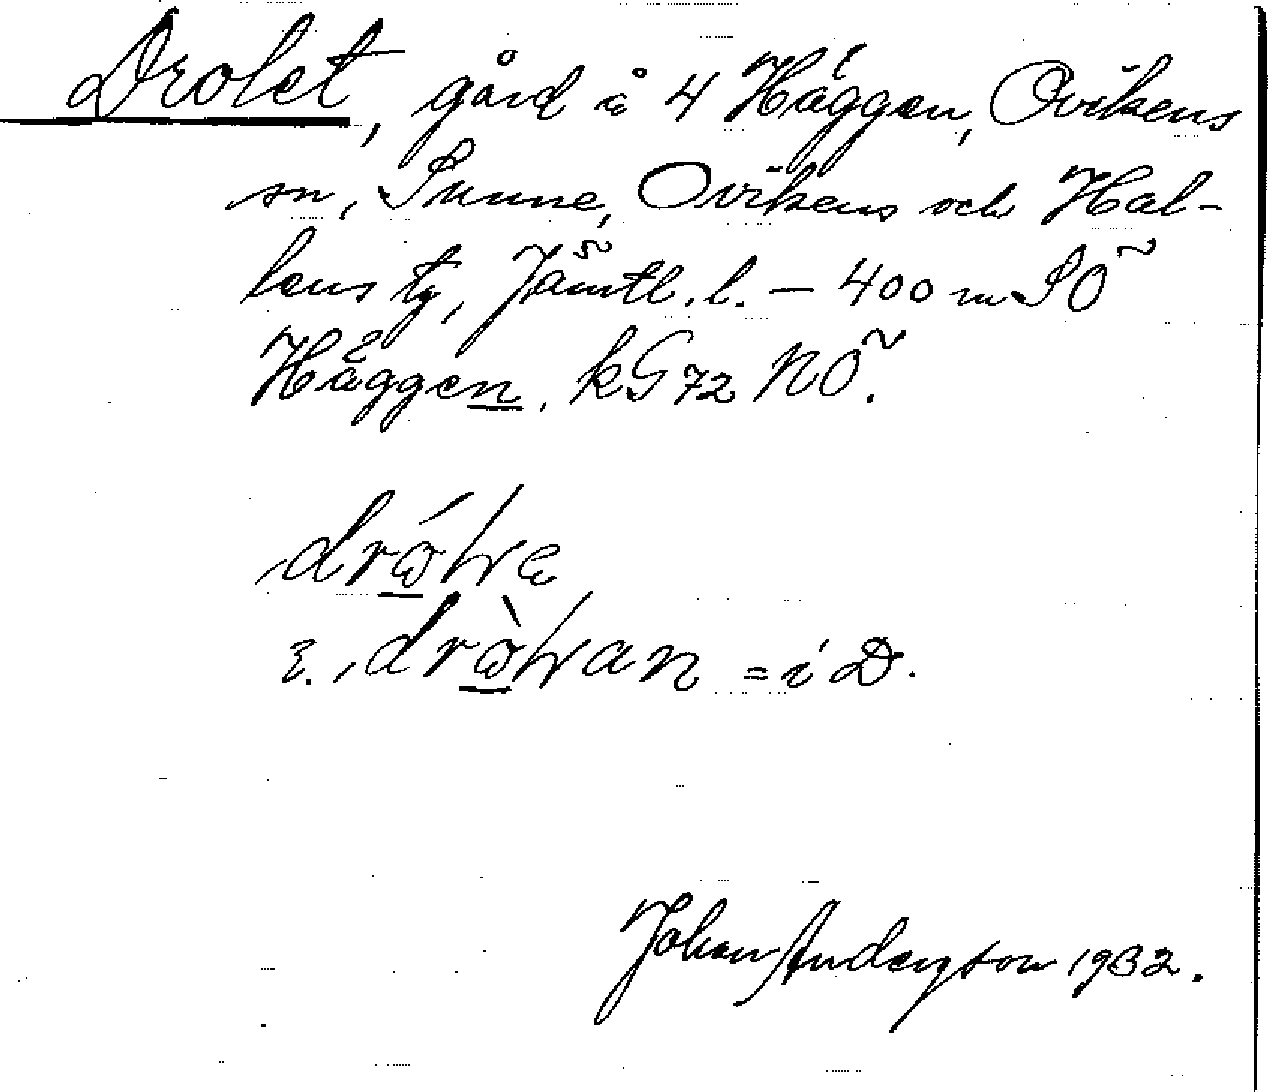 Drolet, gård å 4 Häggen, Ovikens
sn, Sunne, Ovikens och Hal-
lens tg, Jämtl. l. – 400 m SÖ
Häggen. kG 72 NÖ.
= i D.
Johan Anderson 1932.